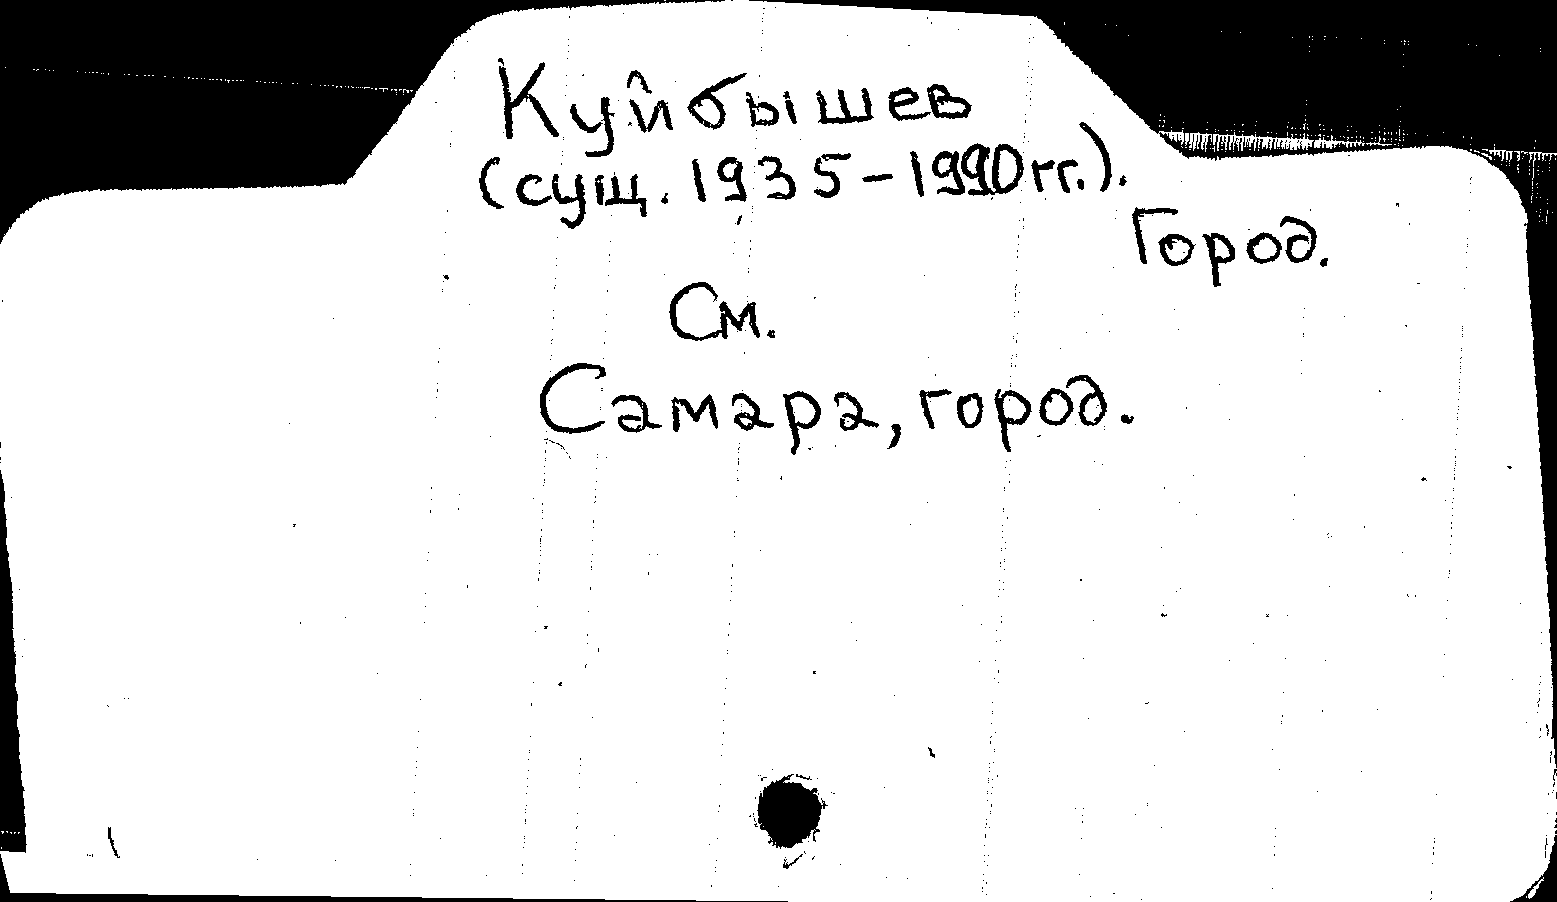 Куйбышев
(сущ. 1935-1990 гг.).
Город.
См.
Самара, город.